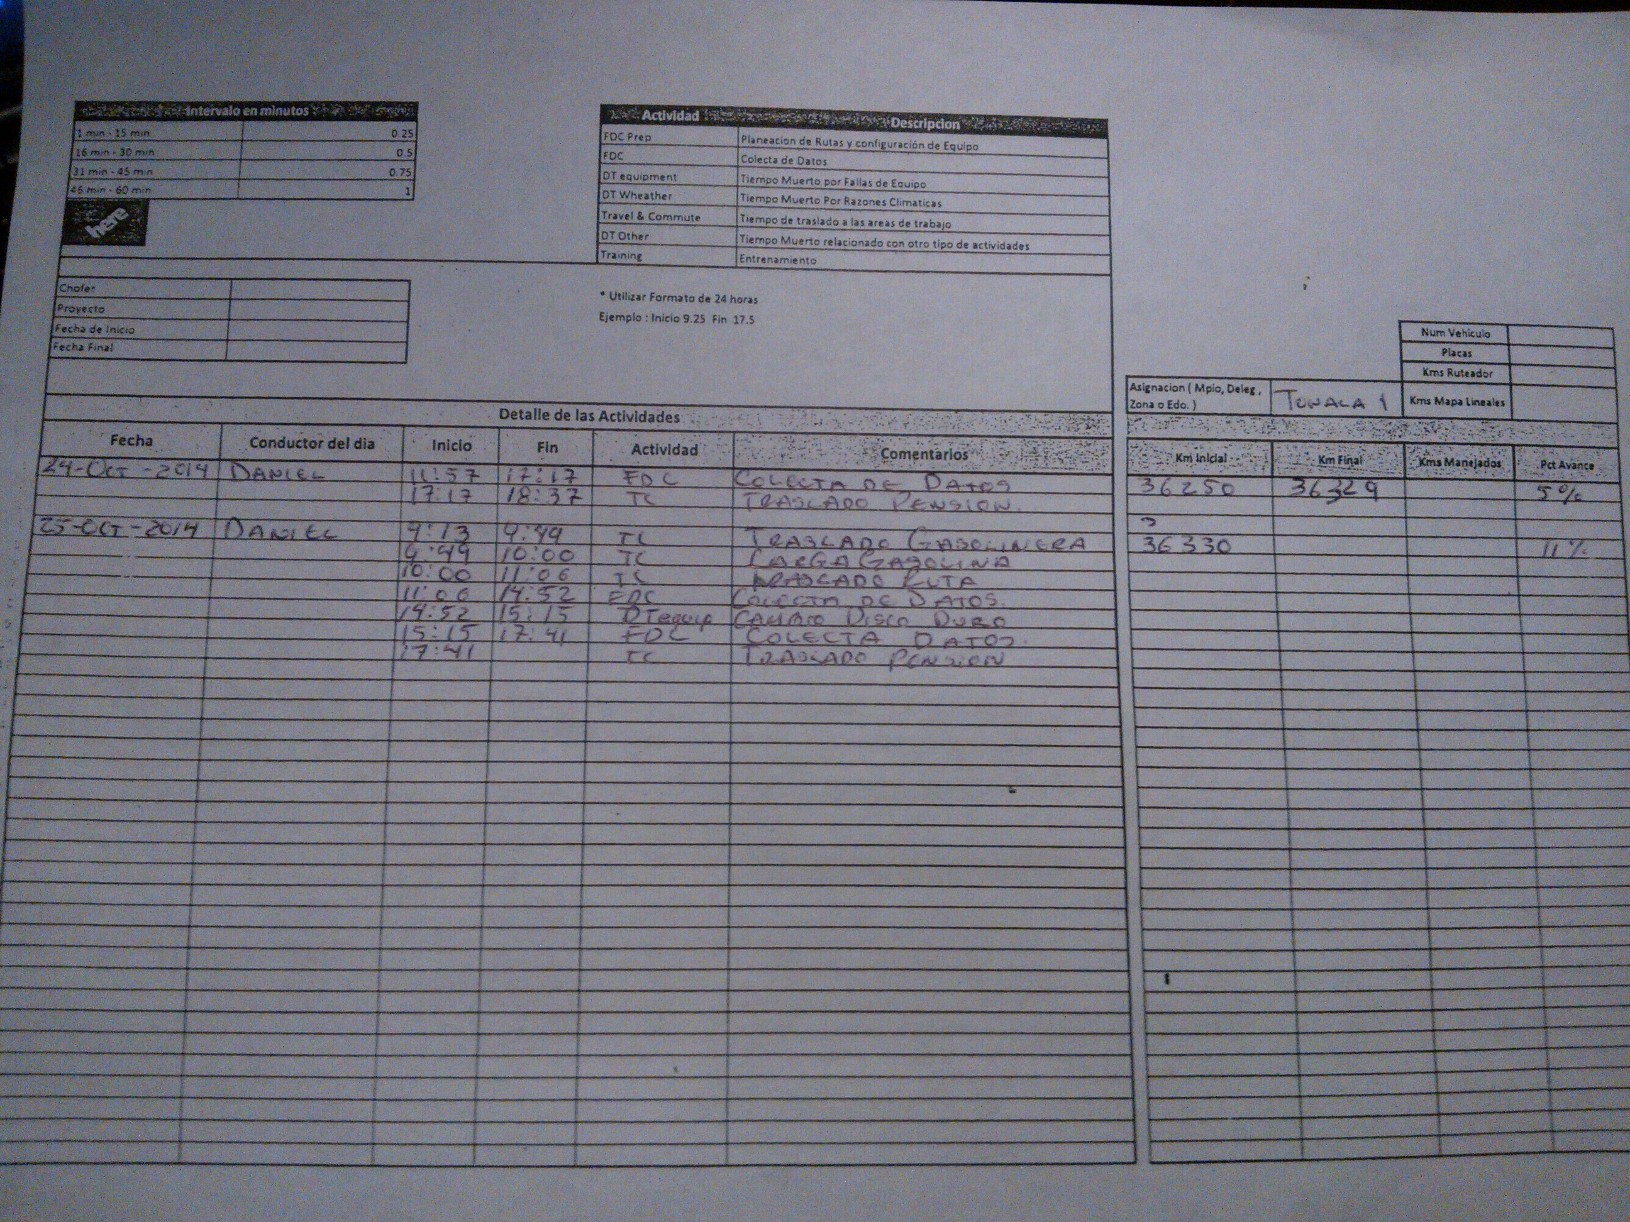 Intervalo en minutos
1 min - 15 min 0.25
16 min - 30 min 0.5
31 min - 45 min 0.75
46 min - 60 min 1
here
Actividad Descripcion
FDC Prep Planeacion de Rutas y configuración de Equipo
FDC Colecta de Datos
DT equipment Tiempo Muerto por Fallas de Equipo
DT Wheather Tiempo Muerto Por Razones Climaticas
Travel & Commute Tiempo de traslado a las areas de trabajo
DT Other Tiempo Muerto relacionado con otro tipo de actividades
Training Entrenamiento
Chofer
Proyecto
Fecha de Inicio
Fecha Final
* Utilizar Formato de 24 horas
Ejemplo : Inicio 9.25 Fin 17.5
Num Vehiculo
Placas
Kms Ruteador
Kms Mapa Lineales
Asignacion ( Mpio, Deleg ,
Zona o Edo. ) TONALA 1
Detalle de las Actividades
Fecha Conductor del dia Inicio Fin Actividad Comentarios Km Inicial Km Final Kms Manejados Pct Avance
24-Oct-2014 DANIEL 11:57 17:17 FDC COLECTA DE DATOS 36250 36329 5%
17:17 18:37 TC TRASCADO PENSION.
25-OCT-2014 DANIEL 9:13 9:49 TC TRASCADO GASOLINERA 36330 11%
9:49 10:00 TC CARGA GASOLINA
10:00 11:06 TC TRASCADO RUTA
11:06 14:52 FDC COLECTA DE DATOS.
14:52 15:15 DTequip CAMBIO DISCO DURO
15:15 17:41 FDC COLECTA DATOS.
17:41 TC TRASCADO PENSION